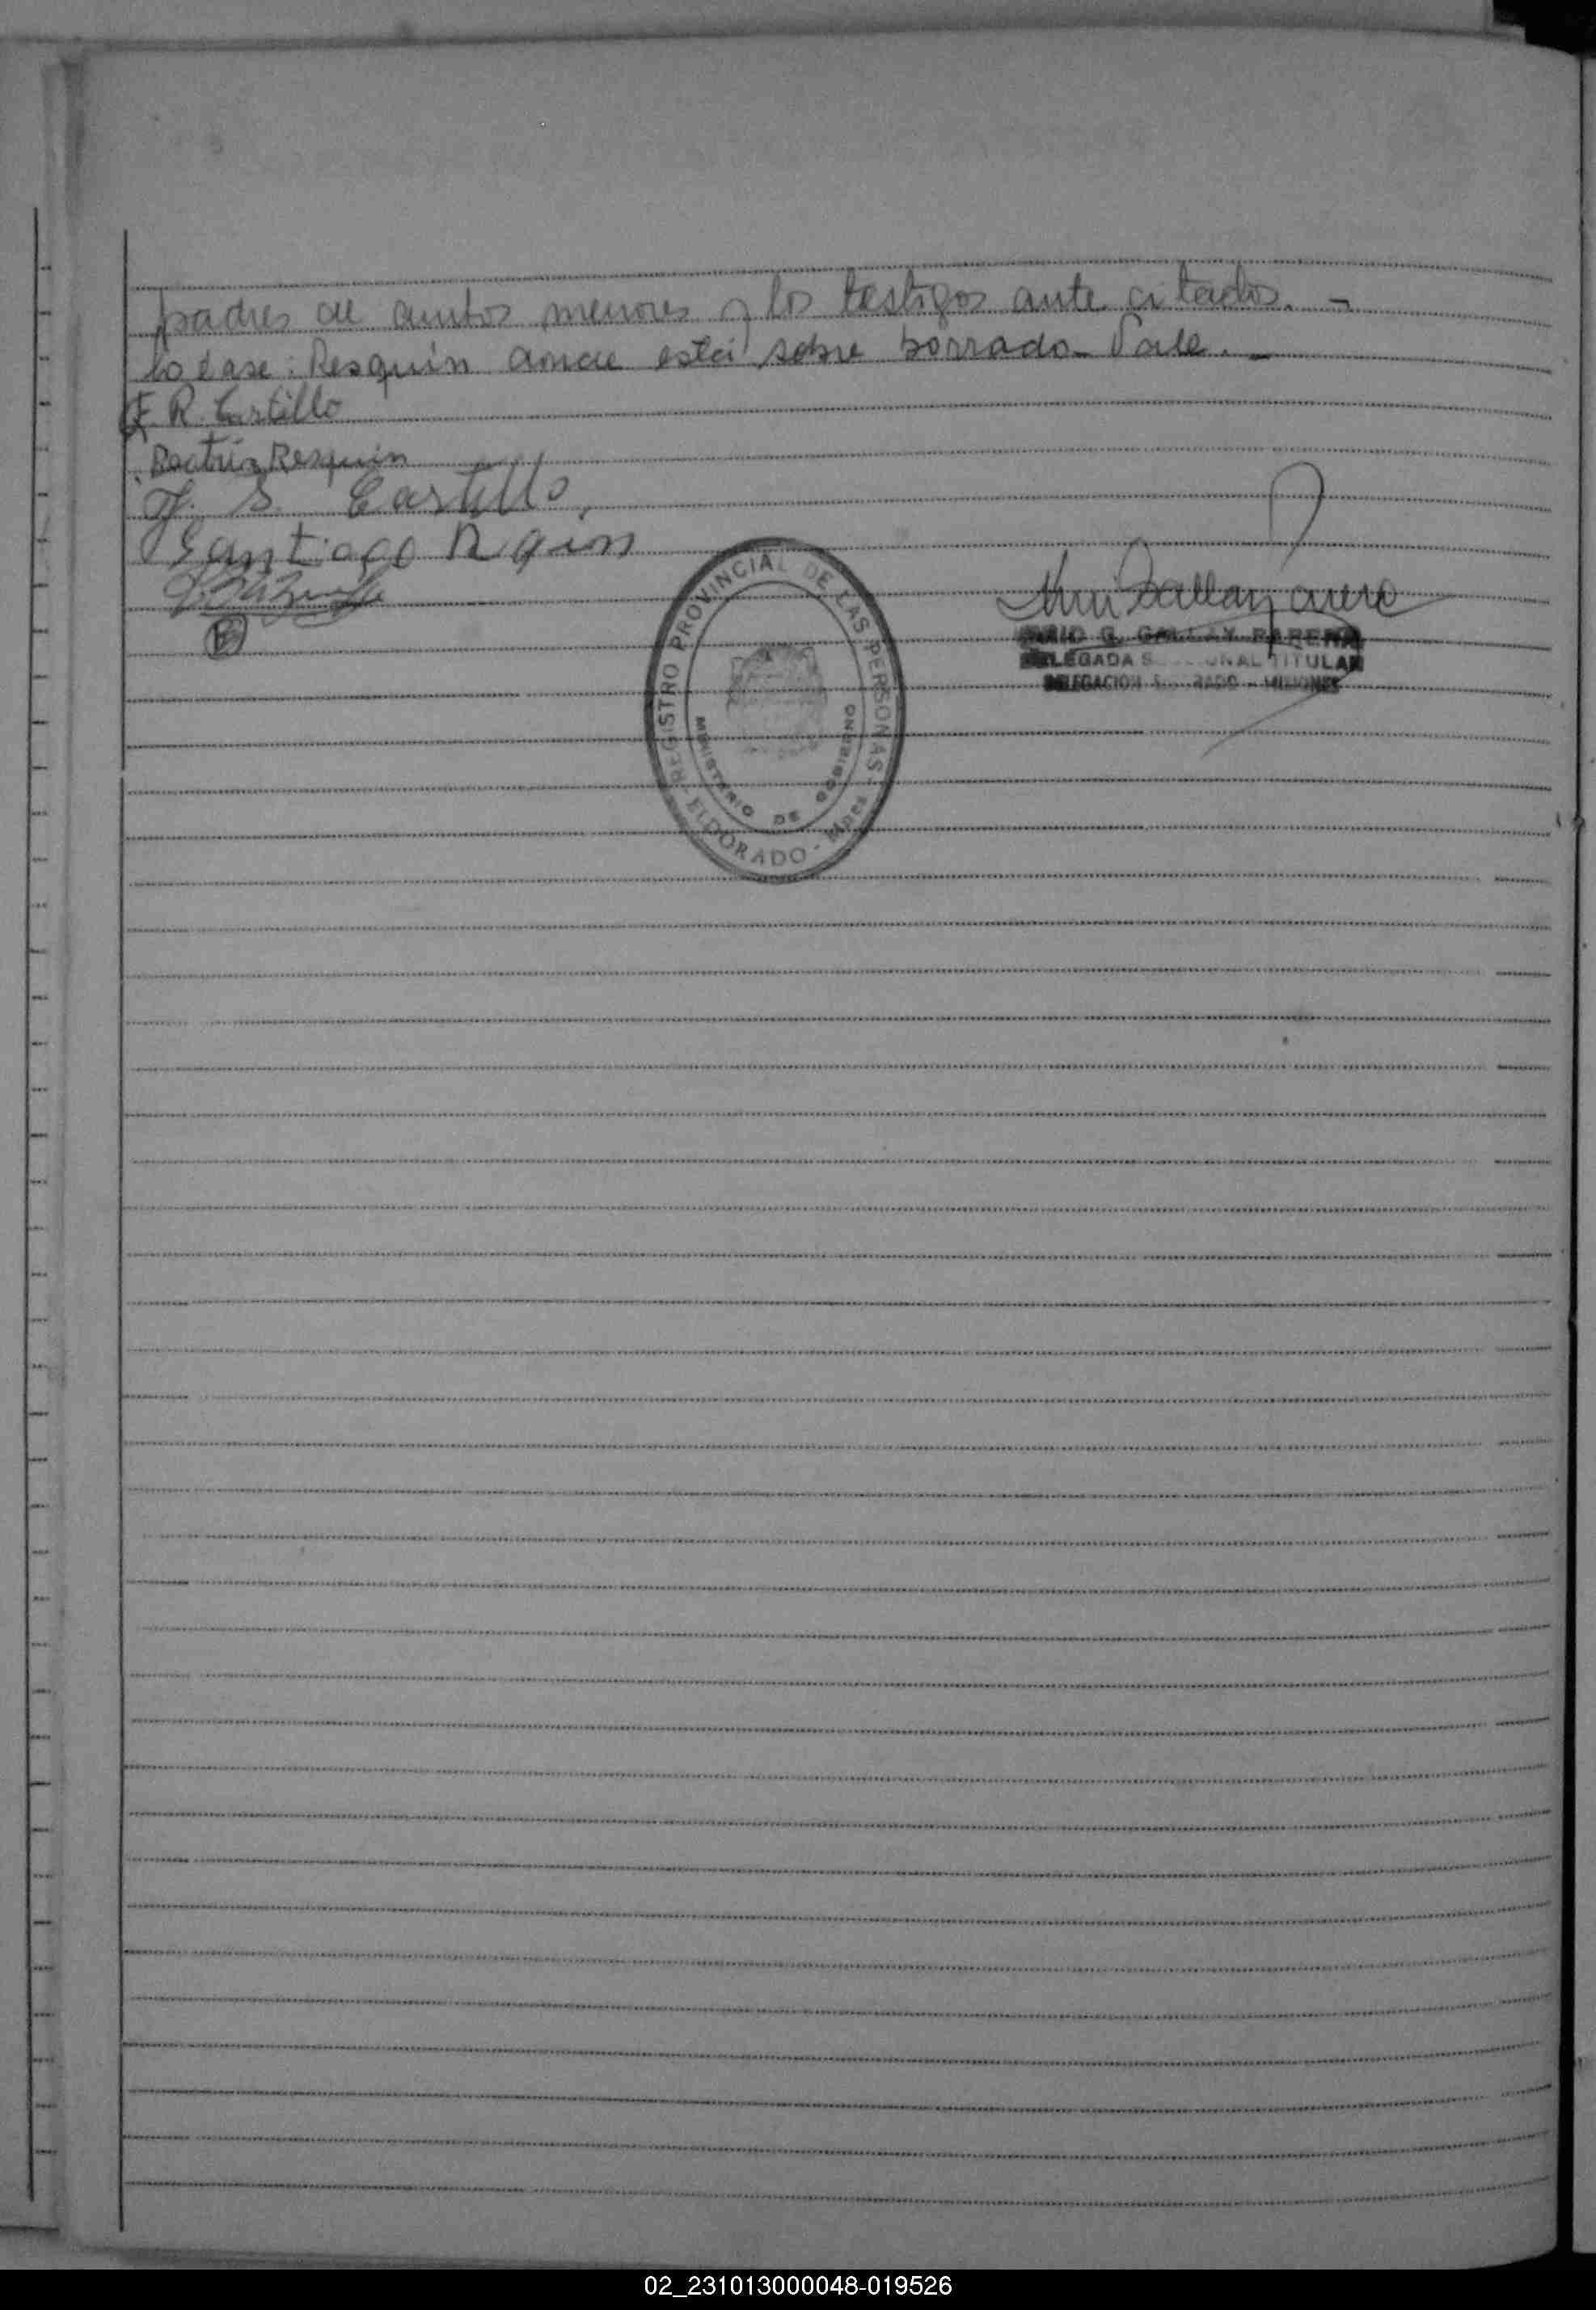 padres de ambos menores y los testigos ante citados. -
Lo léase: Resquín donde está sobre borrado - Vale. -
R. Castillo
Beatriz Resquin
S. Castillo
Santiago
REGISTRO PROVINCIAL DE LAS PERSONAS
MINISTERIO DE GOBIERNO
ELDORADO - Mnes
G. GALLAY
DELEGADA TITULAR
DELEGACION - MISIONES
02_231013000048-019526